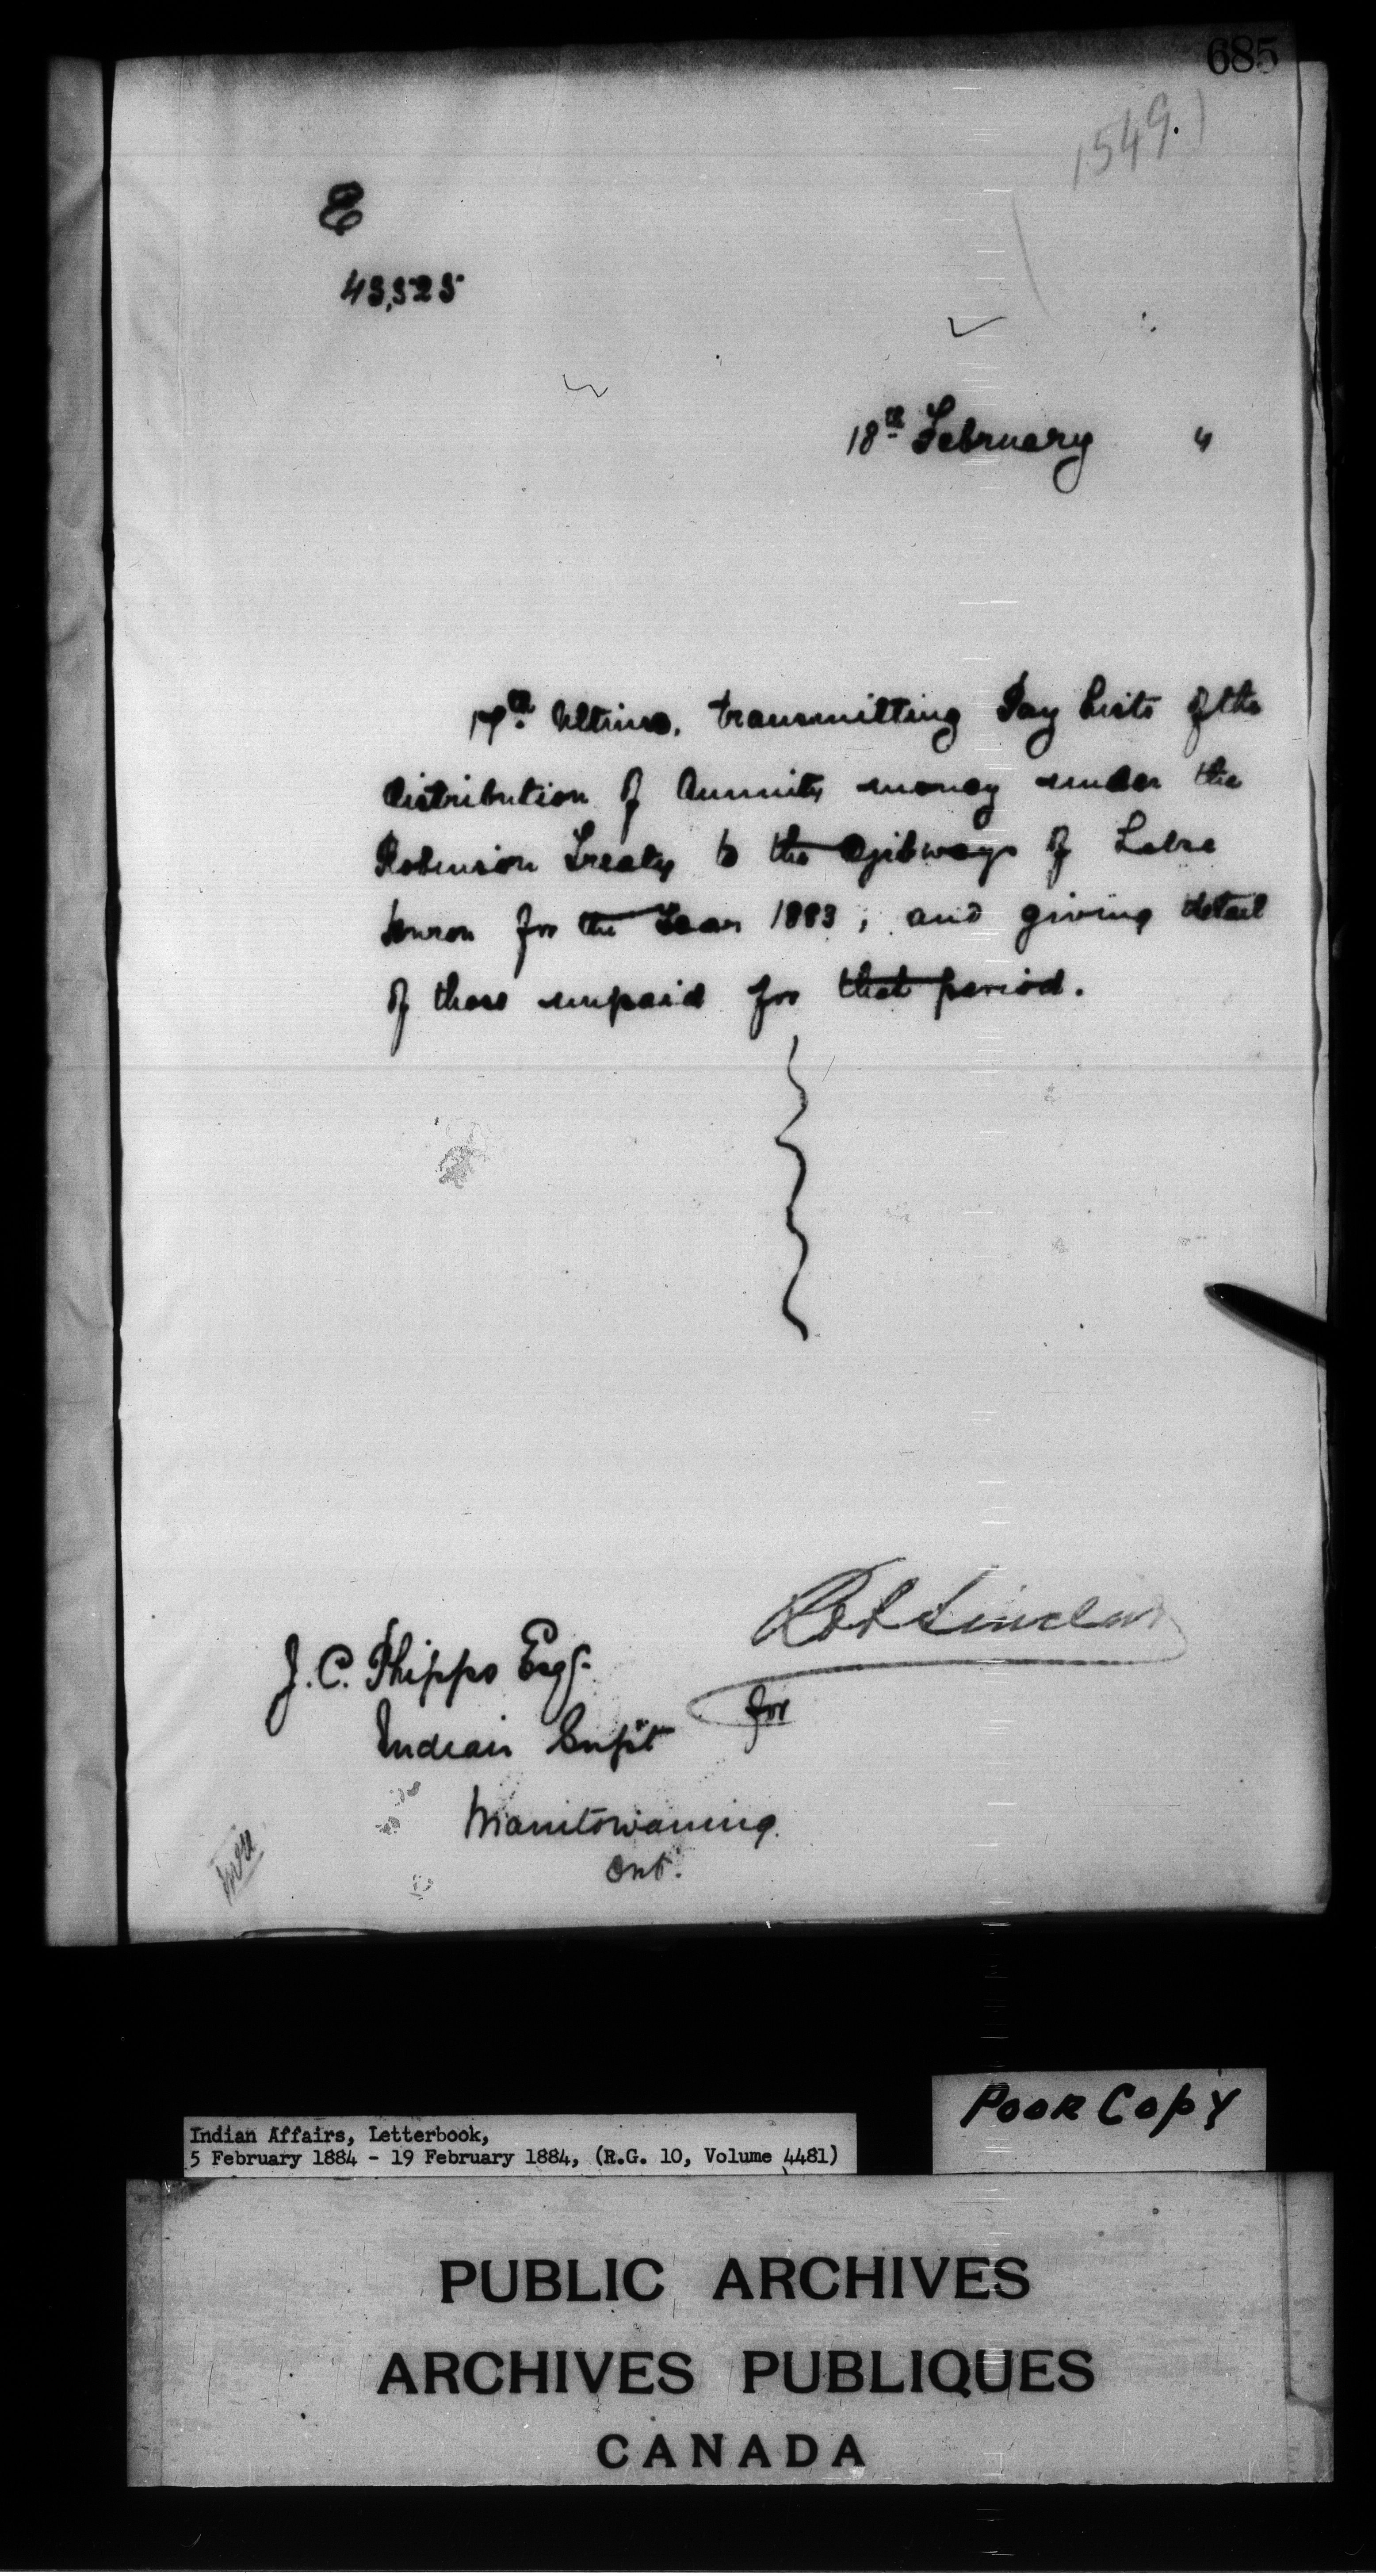 685
1549.)
E
43,525
18th February 4
17th Ultimo, transmitting Pay Lists of the
distribution of Annuity money under the
Robinson Treaty to the Ojibways of Lake
Huron for the Year 1883, and giving detail
of those unpaid for that period.
Robt Sinclair
for
J. C. Phipps Esqr.
Indian Supt
Manitowaning.
Ont.
POOR COPY
Indian Affairs, Letterbook,
5 February 1884 - 19 February 1884, (R.G. 10, Volume 4481)
PUBLIC ARCHIVES
ARCHIVES PUBLIQUES
CANADA